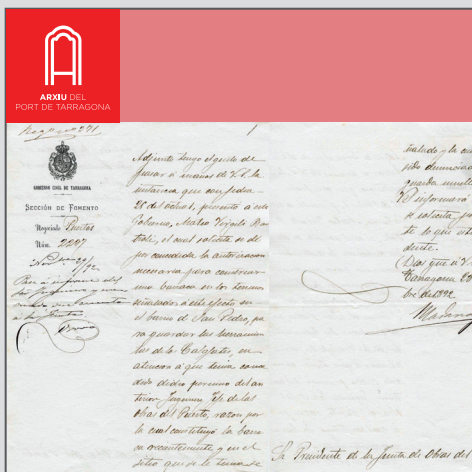 ARXIU DEL
PORT DE TARRAGONA
1
GOBIERNO CIVIL DE TARRAGONA
SECCIÓN DE FOMENTO
Negociado Puertos
Núm. 2297
Adjunto tengo el gusto de
pasar á manos de V.S. la
instancia que con fecha
28 del actual, presentó á este
Gobierno, Mateo Virgilio
el cual solicita se dé
por concedida la autorización
necesaria para construir
una barraca en los terrenos
señalados á este efecto en
el barrio de San Pedro, pa
ra guardar las herramien
tas de los Calafates, en
atención á que tenia conce
dido dicho permiso del an
terior Ingeniero Jefe de las
obras del Puerto, razon por
la cual construyó la barra
ca recientemente y en el
sitio que se le tenia se
ñalado y la cu
sido denunciada
guarda
V.S. informará
se solicita
te lo que esti
dente.
Dios que á V.S.
Tarragona
bre de 1892
Sr. Presidente de la Junta de Obras del